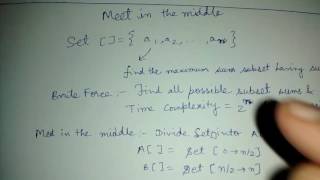 Meet in the middle
Set []= { a₁, a₂, . . . , aₙ}
find the maximum sums subset having su
Brute Force:- Find all possible subset sums &
Time Complexity = 2ⁿ
Med in the middle :- Divide Set into A
A[ ] = Set [0→n/2]
B[ ] = Set [n/2→n]